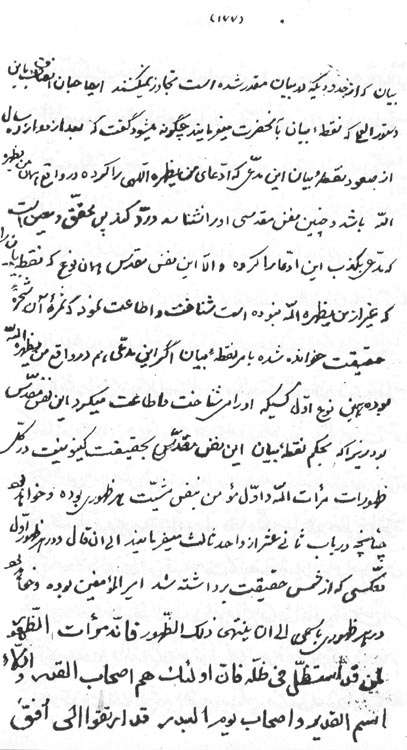 (١٧٧)
بیان که از حدودیکه در بیان مقدر شده است تجاوز نمیکنند ایضا
دستور العمل که نقطه بیان بآنحضرت میفرمایند چگونه میشود گفت که بعد از دوازده سال
از صعود نقطه بیان این مدعی که ادعای من یظهره اللهی را کرده در واقع همان من یظهره
الله باشد و چنین نفس مقدسی او را نشناسد و رد کند پس محقق و معین است
که مدعی بکذب این ادعا را کرده و الا این نفس مقدس همان نوع که نقطه بیان را
که غیر از من یظهره الله نبوده است شناخت و اطاعت نمود که ثمره آن شجره
حقیقت خوانده شده بامر نقطه بیان اگر این مدعی هم در واقع من یظهره الله
بوده همین نوع اول کسیکه او را می شناخت و اطاعت میکرد این نفس مقدس
بود زیرا که بحکم نقطه بیان این نفس مقدس بحقیقت کینونیت در کل
ظهورات مرآت الله و اول مؤمن بنفس مشیت هر ظهوری بوده و خواهد بود
چنانچه در باب ثانی عشر از واحد ثالث میفرمایند الی ان قال و در هر ظهور اول
عکسی که از شمس حقیقت برداشته شد امیر المؤمنین بوده و
در هر ظهوری باسمی الی ان ینتهی ذلک الظهور فانه مرآت الظهور
لمن قد استظل فی ظله فان اولئک هم اصحاب القدر و
اسم القدیر و اصحاب یوم البدر قد ارتقوا الی افق